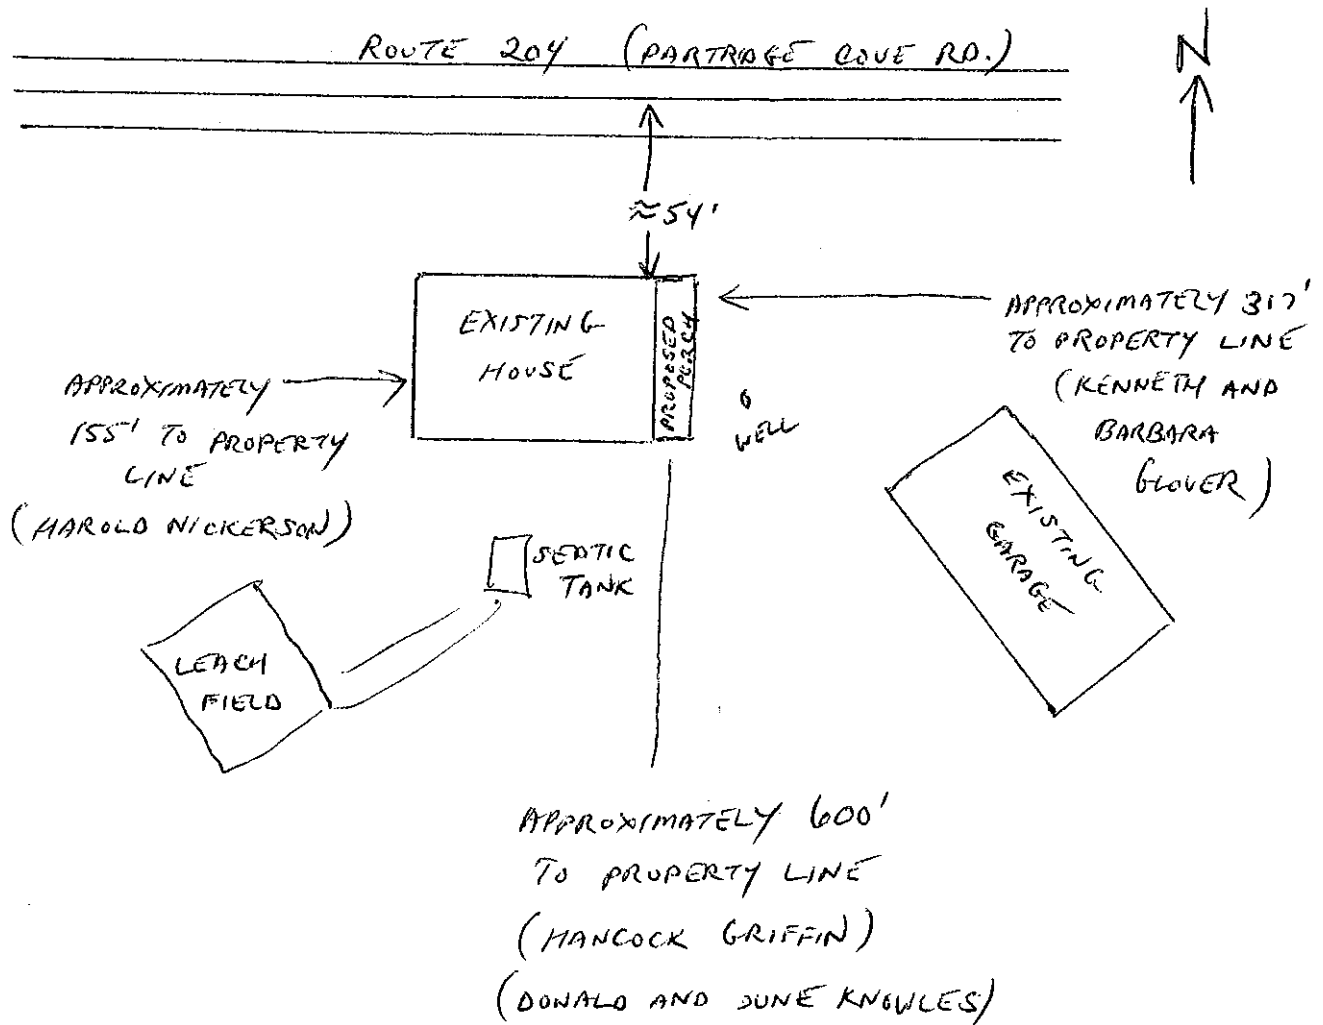 ROUTE 204 (PARTRAGE COVE RD.)
N
≈54'
EXISTING
HOUSE
PROPOSED
PORCH
APPROXIMATELY 317'
TO PROPERTY LINE
(KENNETH AND
BARBARA
GLOVER)
APPROXIMATELY
155' TO PROPERTY
LINE
(HAROLD NICKERSON)
WELL
EXISTING
GARAGE
SEPTIC
TANK
LEACH
FIELD
APPROXIMATELY 600'
TO PROPERTY LINE
(HANCOCK GRIFFIN)
(DONALD AND JUNE KNOWLES)